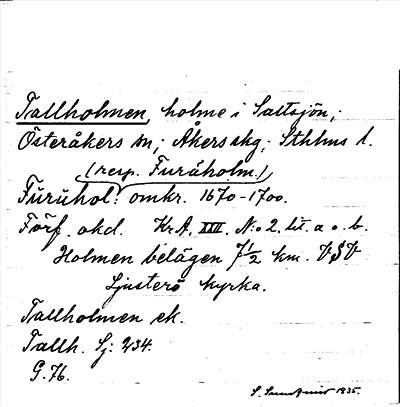 Tallholmen, holme i Saltsjön,
Österåkers sn; Åkers skg; Sthlms l.
(resp. Furåholm.)
Furuhol: omkr. 1670-1700.
Förf. okd. Kr.A. XIII. No 2. lit. a o. b.
Holmen belägen 7½ km. VSV
Ljusterö kyrka.
Tallholmen ek.
Tallh. Sj: 234.
G. 76.
1935.